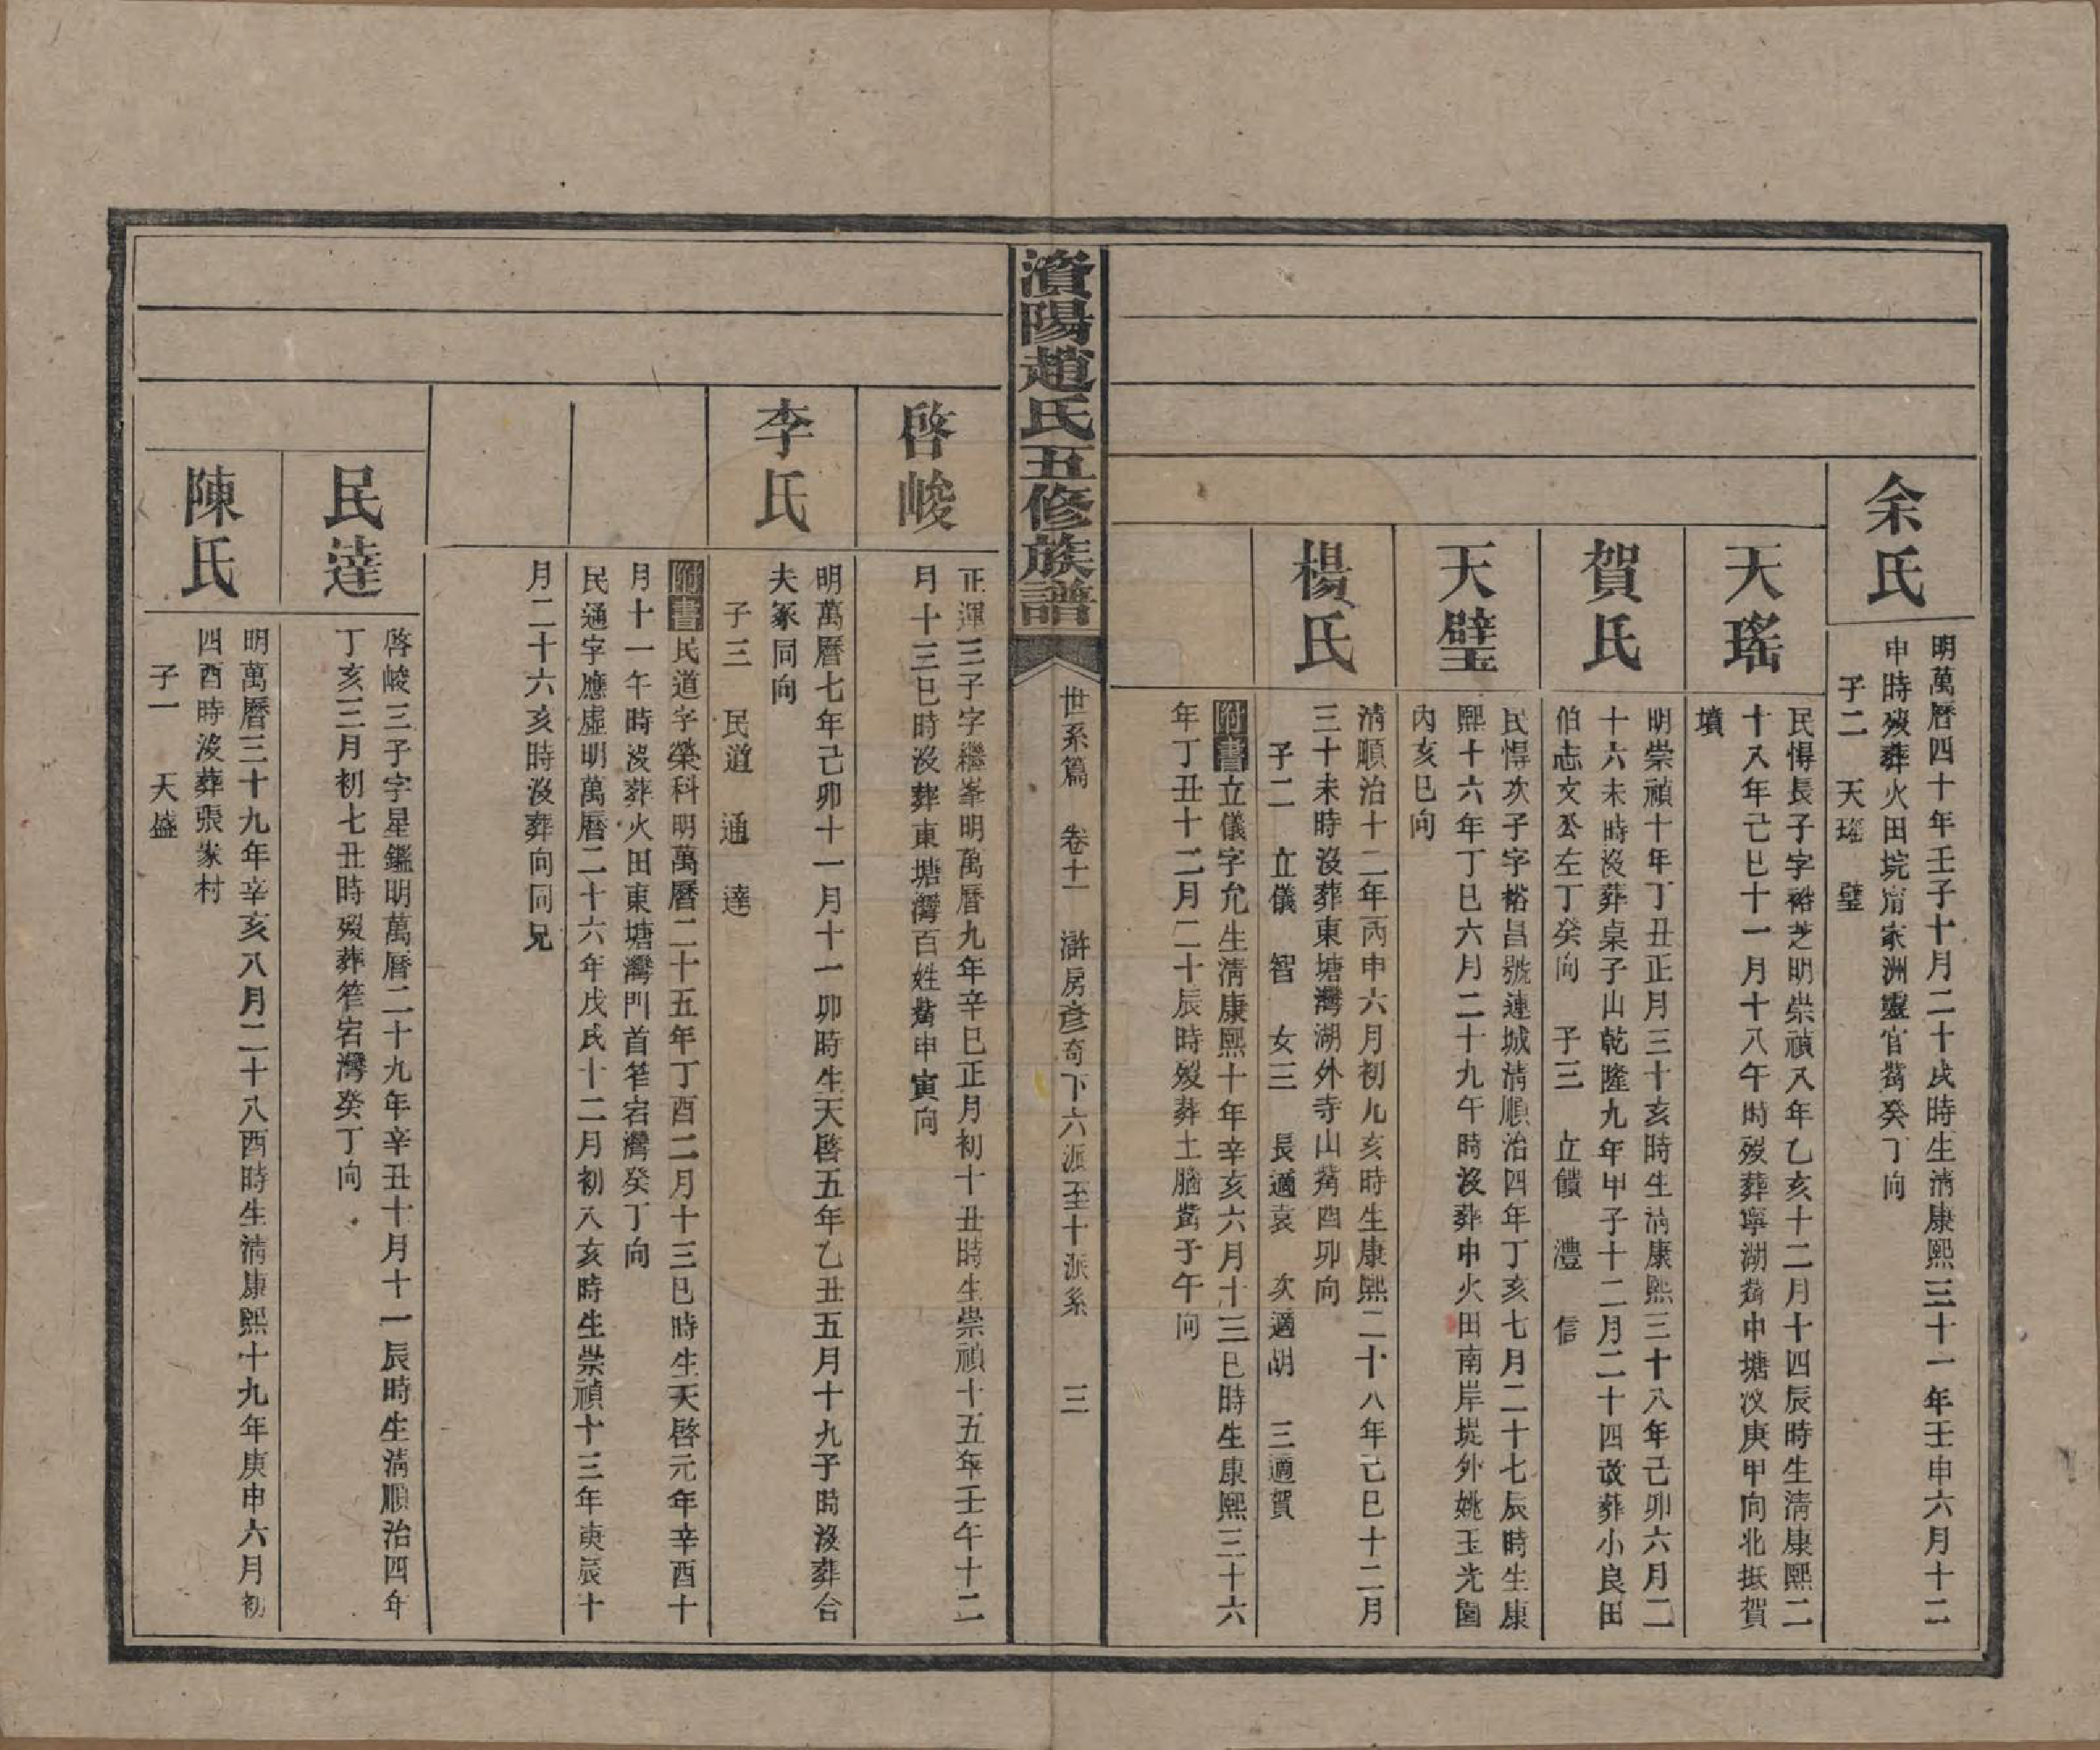 余氏
明萬曆四十年壬子十月二十戌時生淸康熙三十一年壬申六月十二
申時歿葬火田垸甯家洲靈官嘴癸丁向
子二 天瑤 璧
天瑤
民憚長子字裕芝明崇禎八年乙亥十二月十四辰時生淸康熙二
十八年己巳十一月十八午時歿葬寧湖嘴中塘汊庚甲向北抵賀
墳
賀氏
明崇禎十年丁丑正月三十亥時生淸康熙三十八年己卯六月二
十六未時沒葬桌子山乾隆九年甲子十二月二十四改葬小良田
伯志文公左丁癸向 子三 立饋 澧 信
天璧
民憚次子字裕昌號連城淸順治四年丁亥七月二十七辰時生康
熙十六年丁巳六月二十九午時沒葬中火田南岸堤外姚玉光園
內亥巳向
楊氏
淸順治十二年丙申六月初九亥時生康熙二十八年己巳十二月
三十未時沒葬東塘灣湖外寺山嘴酉卯向
子二 立儀 智 女三 長適袁 次適胡 三適賀
附書立儀字允生淸康熙十年辛亥六月十三巳時生康熙三十六
年丁丑十二月二十辰時歿葬土腦嘴子午向
濱陽趙氏五修族譜
世系篇 卷十一 滸房彥奇下六派至十派系 三
啓峻
正運三子字繼峯明萬曆九年辛巳正月初十丑時生崇禎十五年壬午十二
月十三巳時沒葬東塘灣百姓嘴申寅向
李氏
明萬曆七年己卯十一月十一卯時生天啓五年乙丑五月十九子時沒葬合
夫冢同向
子三 民道 通 達
附書民道字榮科明萬曆二十五年丁酉二月十三巳時生天啓元年辛酉十
月十一午時沒葬火田東塘灣門首笮宕灣癸丁向
民通字應虛明萬曆二十六年戊戌十二月初八亥時生崇禎十三年庚辰十
月二十六亥時沒葬向同兄
民達
啓峻三子字星鑑明萬曆二十九年辛丑十月十一辰時生淸順治四年
丁亥三月初七丑時歿葬笮宕灣癸丁向
陳氏
明萬曆三十九年辛亥八月二十八酉時生淸康熙十九年庚申六月初
四酉時沒葬張家村
子一 天盛